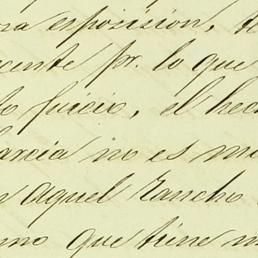 ra esposicion, de
cente pr. lo que
juicio, el hech
Garcia no es m
n aquel rancho
mo que tiene m